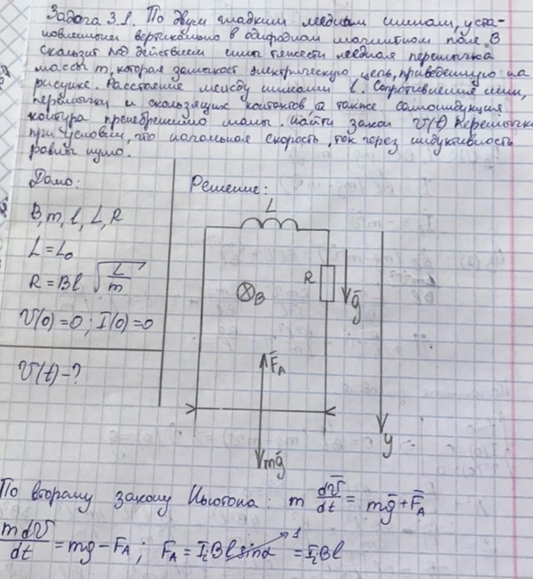 Задача 3.1. По двум гладким медным шинам, уста-
новленным вертикально в однородном магнитном поле B
скользит под действием силы тяжести медная перемычка
массы m, которая замыкает электрическую цепь, приведённую на
рисунке. Расстояние между шинами l. Сопротивление шин,
перемычки и скользящих контактов а также самоиндукция
контура пренебрежимо малы. Найти закон V(t) перемычки
при условии, что начальная скорость, ток через индуктивность
равны нулю.
Дано:
Решение:
B, m, l, L, R
L = L₀
R = Bl √(L/m)
V(0) = 0 ; I(0) = 0
V(t) - ?
L
R
⊗B
g⃗
F⃗A
mg⃗
y
По второму закону Ньютона: m dV⃗/dt = mg⃗ + F⃗A
mdV/dt = mg - FA ; FA = ILBl sinα 1 = ILBl